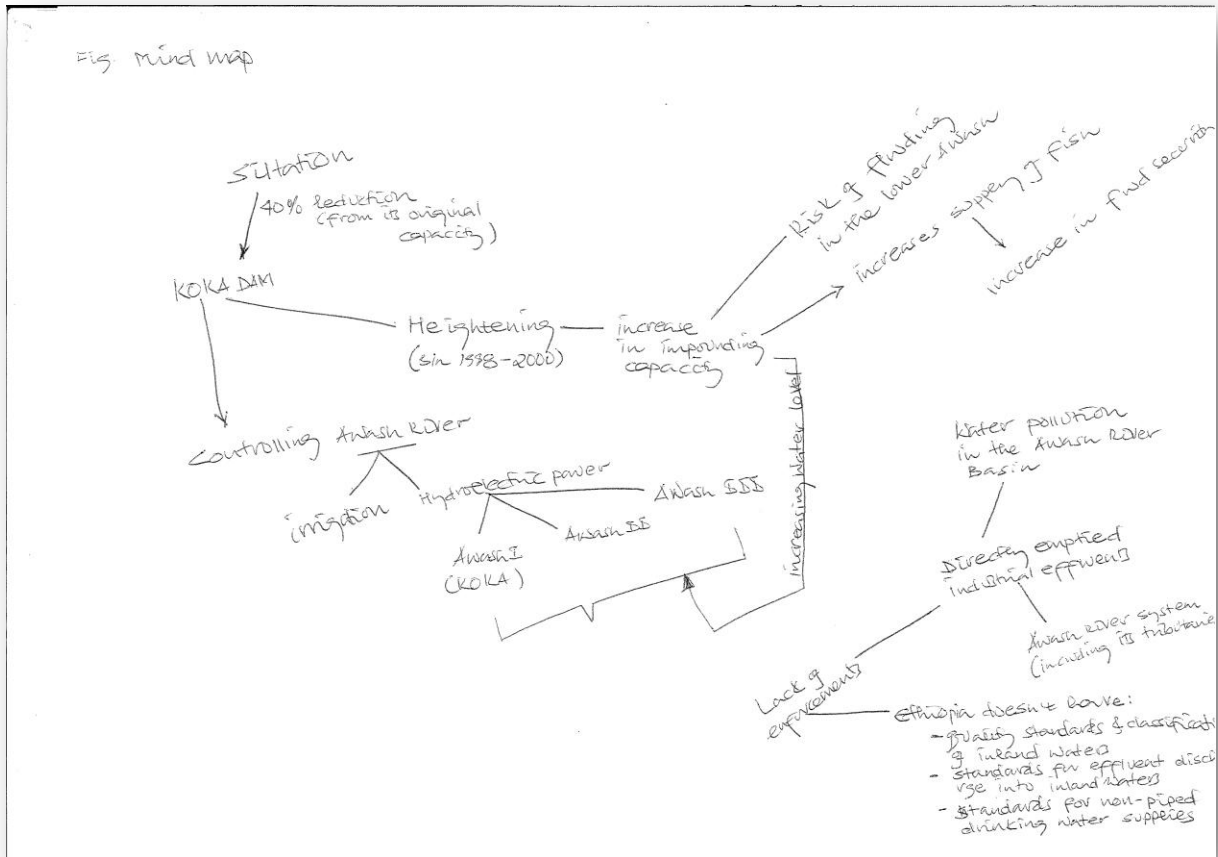 Fig. Mind map
Siltation
40% reduction
(from its original
capacity)
KOKA DAM
Heightening
(sin 1998-2000)
increase
in impounding
capacity
Risk of flooding
in the lower Awash
increases suppey of fish
increase in food securit
increasing water level
Controlling Awash River
irrigation
Hydroelectric power
Awash I
(KOKA)
Awash II
Awash III
Water pollution
in the Awash River
Basin
Directey emptied
industrial effluents
Awash River system
(including its tributarie
Lack of
enforcements
Ethiopia doesn't have:
- quality standards & classificati
of inland waters
- standards for effluent disch
rge into inland waters
- standards for non-piped
drinking water suppeies